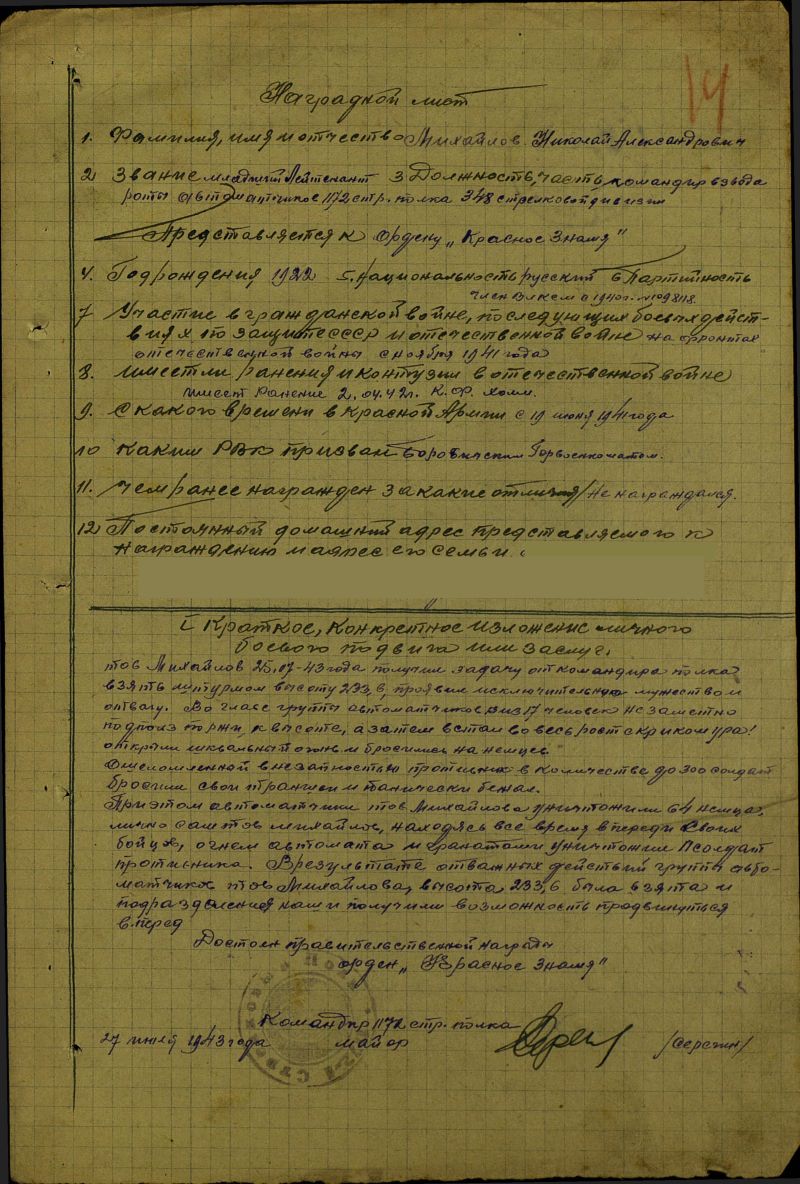 14
Наградной лист
1. Фамилия, имя и отчество Михайлов Николай Александрович
2 Звание младший Лейтенант 3 Должность, часть, командир взвода
роты автоматчиков 1172 стр. полка 348 стрелковой дивизии
Представляется к ордену „Красное Знамя"
4. Год рождения 1922 5. национальность русский 6 Партийность
член ВЛКСМ с 1940г.
7 Участие в гражданской войне, последующих боевых дейст-
виях по защите СССР и отечественной войне на фронтах
отечественной войны с ноября 1941 года
8. имеет ли ранения и контузии в отечественной войне
имеет ранение 2.04.42г. К.Ф. Холм.
9. С какого времени в Красной Армии с 19 июня 1941 года
10 Каким РВК призван Боровичским Горвоенкоматом.
11. Чем ранее награжден за какие отличия / Не награждался.
12 Постоянный домашний адрес представляемого к
награждению и адрес его семьи.
I Краткое, конкретное изложение личного
боевого подвига или заслуг.
тов Михайлов 25.07-43 года получил задачу от командира полка
взять штурмом высоту 233,6, проявил исключительную мужество и
отвагу. Во главе группы автоматчиков из 17 человек незаметно
подполз к высоте, а затем встал во весь рост с криком ура!
открыли шквальный огонь и бросились на немцев
Ошеломленной внезапностью противник в количестве до 300 солдат
бросили свои траншеи и панически бежал.
При этом автоматчики тов. Михайлова уничтожили 64 немца,
лично сам тов михайлов, находясь все время впереди своих
бойцов, огнем автомата и гранатами уничтожил 11 солдат
противника. В результате отважных действий группы авто-
матчиков тов Михайлова, высота 233,6 была взята и
подразделения наши получили возможность продвинуться
вперед
Достоин правительственной награды
орден „Красное Знамя"
Командир 1172 стр. полка
27 июля 1943 года майор /Серегин/